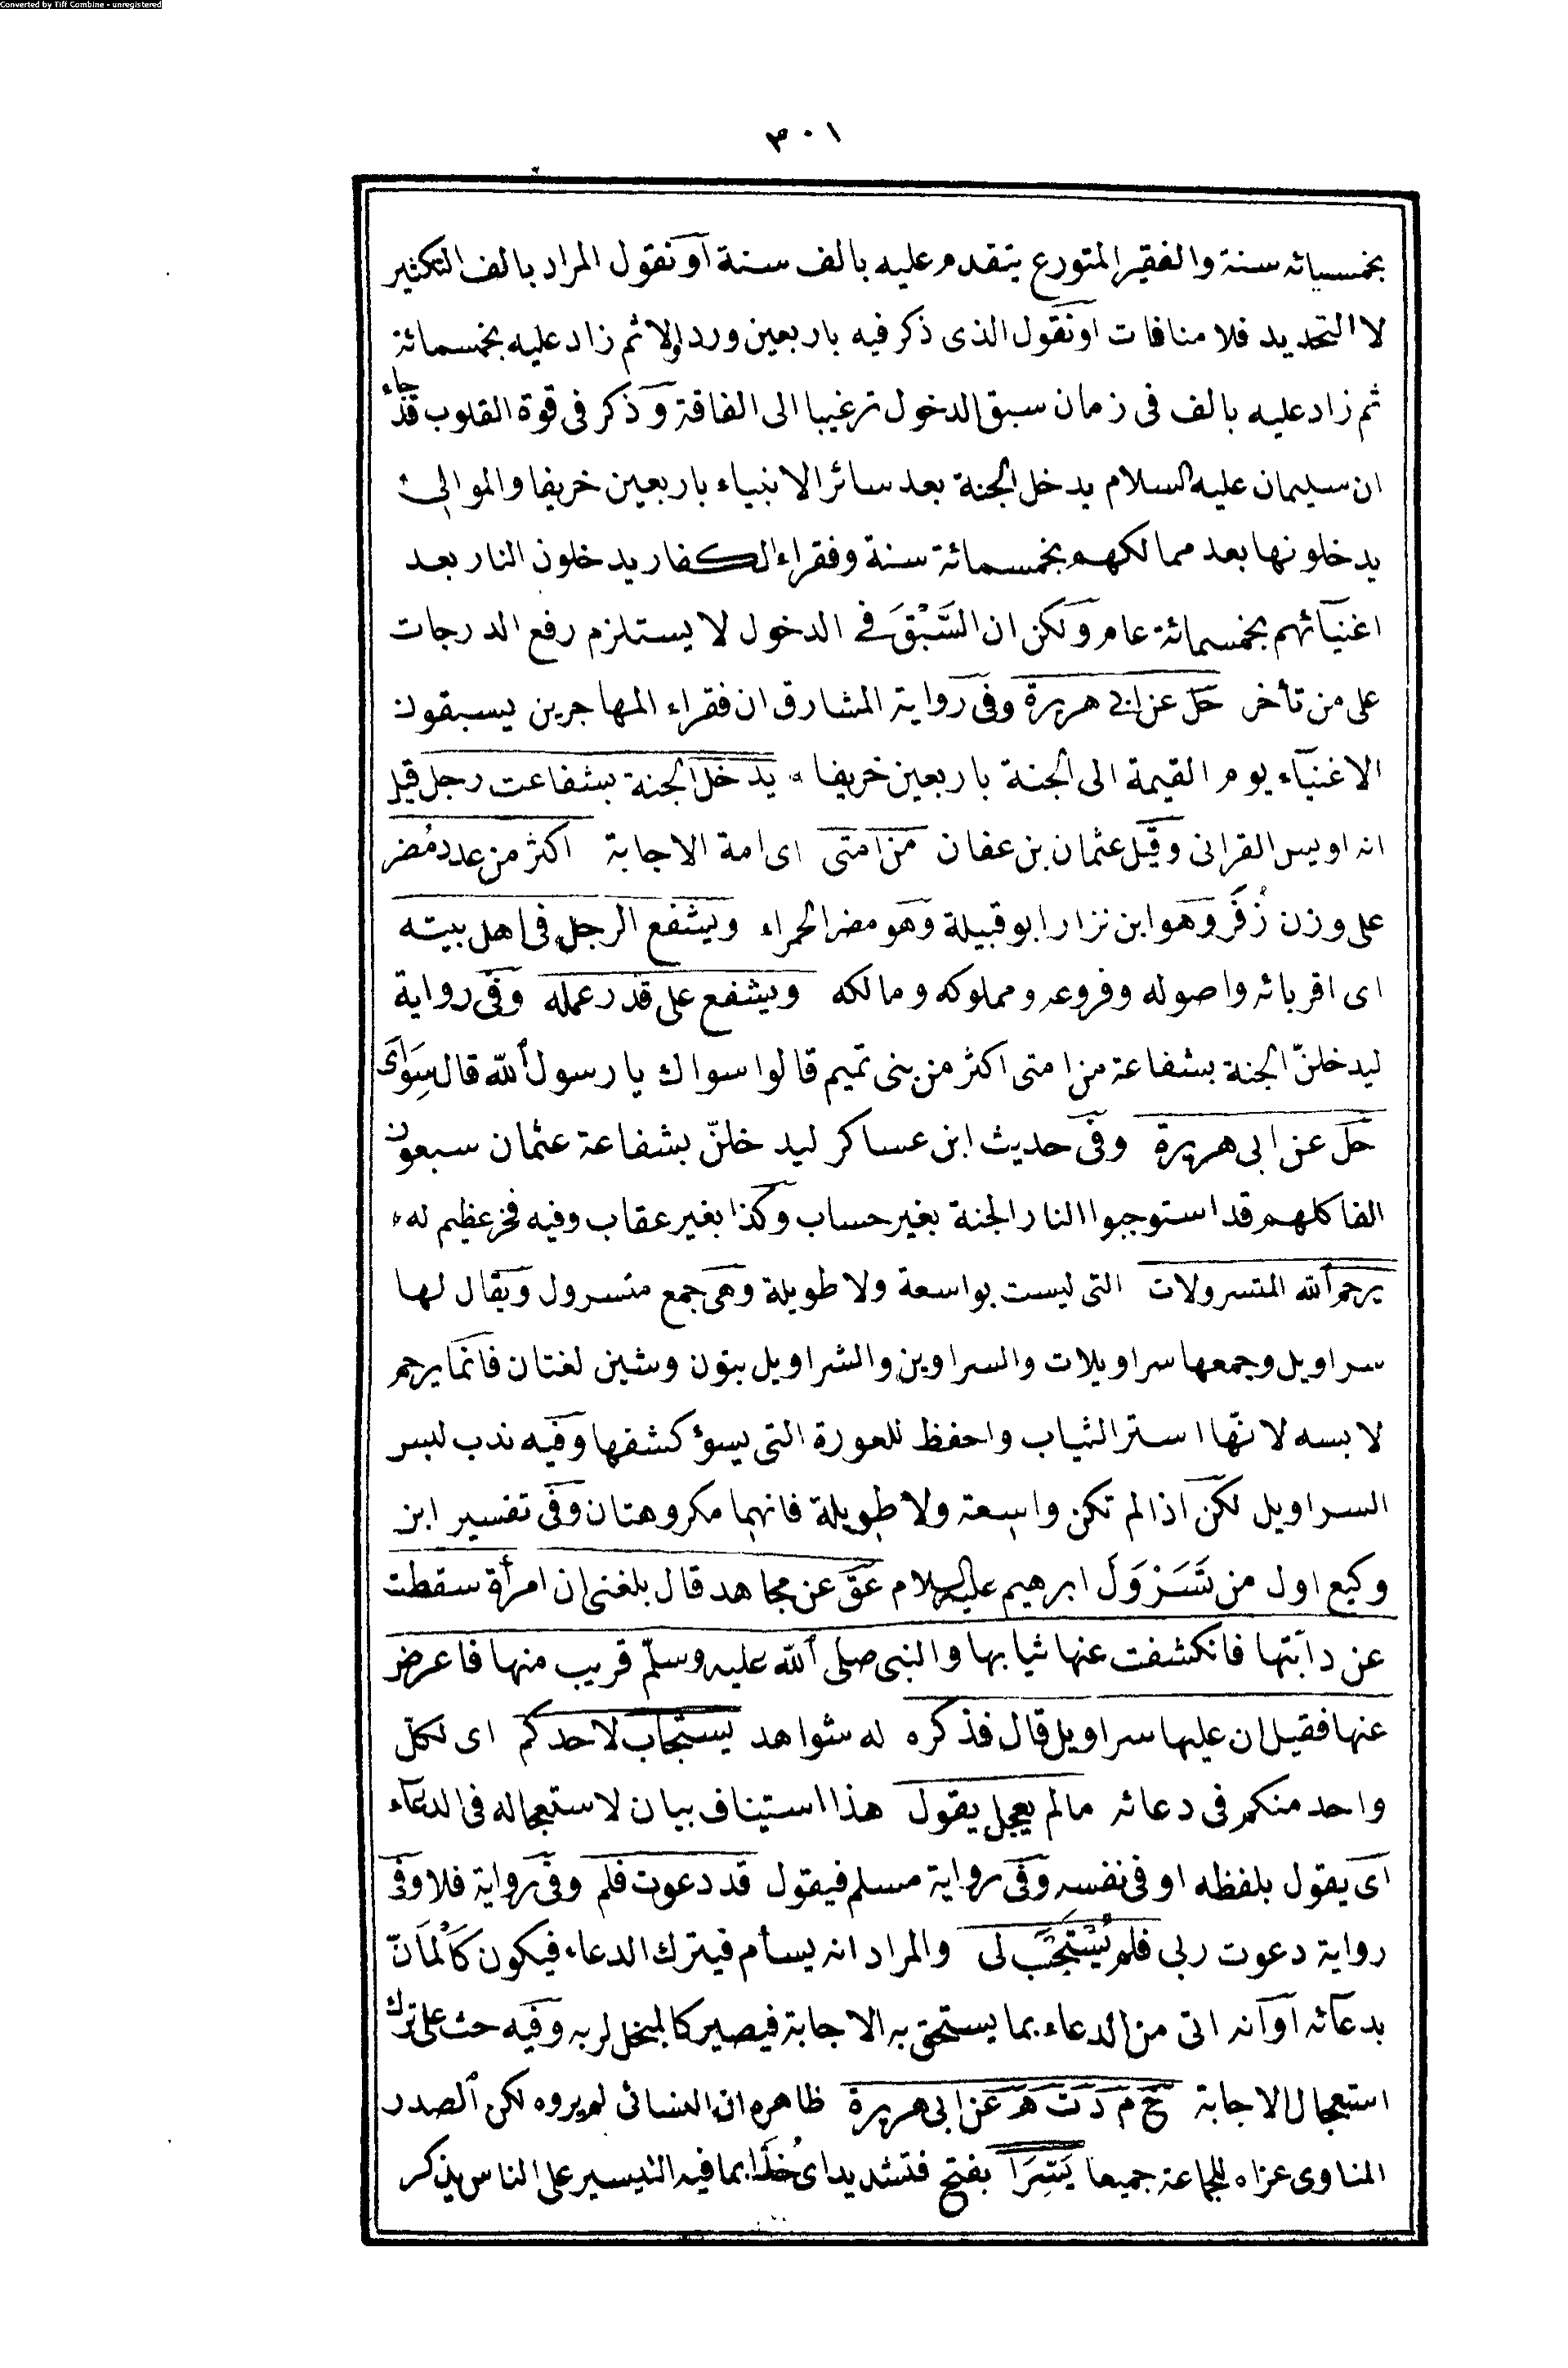 Converted by Tiff Combine - unregistered
٣٠١
بخمسمائه سنة والفقير المتورع يتقدم عليه بالف سنة او نقول المراد بالف التكثير
لا التحديد فلا منافات او نقول الذى ذكر فيه باربعين ورد اولا ثم زاد عليه بخمسمائة
ثم زاد عليه بالف فى زمان سبق الدخول ترغيبا الى الفاقة وذكر فى قوة القلوب قد جاء
ان سليمان عليه السلام يدخل الجنة بعد سائر الانبياء باربعين خريفا والموالى
يدخلونها بعد ممالكهم بخمسمائة سنة وفقراء الكفار يدخلون النار بعد
اغنيآئهم بخمسمائة عام ولكن ان السَّبْقَ فى الدخول لا يستلزم رفع الدرجات
على من تأخر حل عن ابى هريرة وفى رواية المشارق ان فقراء المهاجرين يسبقون
الاغنيآء يوم القيمة الى الجنة باربعين خريفا * يدخل الجنة بشفاعت رجل قيل
انه اويس القرانى وقيل عثمان بن عفان من امتى اى امة الاجابة اكثر من عدد مُضر
على وزن زُفَر وهو ابن نزار ابو قبيلة وهو مضر الحمراء ويشفع الرجل فى اهل بيته
اى اقربائه واصوله وفروعه ومملوكه ومالكه ويشفع على قدر عمله وفى رواية
ليدخلنّ الجنة بشفاعة من امتى اكثر من بنى تميم قالوا سواك يا رسول الله قال سِوَاىَ
حل عن ابى هريرة وفى حديث ابن عساكر ليدخلنّ بشفاعة عثمان سبعون
الفا كلهم قد استوجبوا النار الجنة بغير حساب وكذا بغير عقاب وفيه فخر عظيم له *
يرحم الله المتسرولات التى ليست بواسعة ولا طويلة وهى جمع متسرول ويقال لها
سراويل وجمعها سراويلات والسراوين والشراويل بنون وشين لغتان فانما يرحم
لابسه لانّها استر الثياب واحفظ للعورة التى يسوؤ كشفها وفيه ندب لبس
السراويل لكن اذا لم تكن واسعة ولا طويلة فانهما مكروهتان وفى تفسير ابن
وكيع اول من تَسَرْوَلَ ابرهيم عليه السلام عق عن مجاهد قال بلغنى ان امرأة سقطت
عن دابّتها فانكشفت عنها ثيابها والنبى صلى الله عليه وسلّم قريب منها فاعرض
عنها فقيل ان عليها سراويل قال فذكره له شواهد يستجاب لاحدكم اى لكل
واحد منكم فى دعائه مالم يعجل يقول هذا استيناف بيان لاستعجاله فى الدعآء
اى يقول بلفظه او فى نفسه وفى رواية مسلم فيقول قد دعوت فلم وفى رواية فلا وفى
رواية دعوت ربى فلم يُسْتَجَبْ لى والمراد انه يسأم فيترك الدعاء فيكون كَالْمَانّ
بدعآئه او انه اتى من الدعاء بما يستحق به الاجابة فيصير كالمبخل لربه وفيه حث على ترك
استعجال الاجابة خ م د ت ه عن ابى هريرة ظاهره ان النسائى لم يروه لكن الصدر
المناوى عزاه للجماعة جميعا يَسِّرَا بفتح فتشديد اى خُذا بما فيه التيسير على الناس بذكر